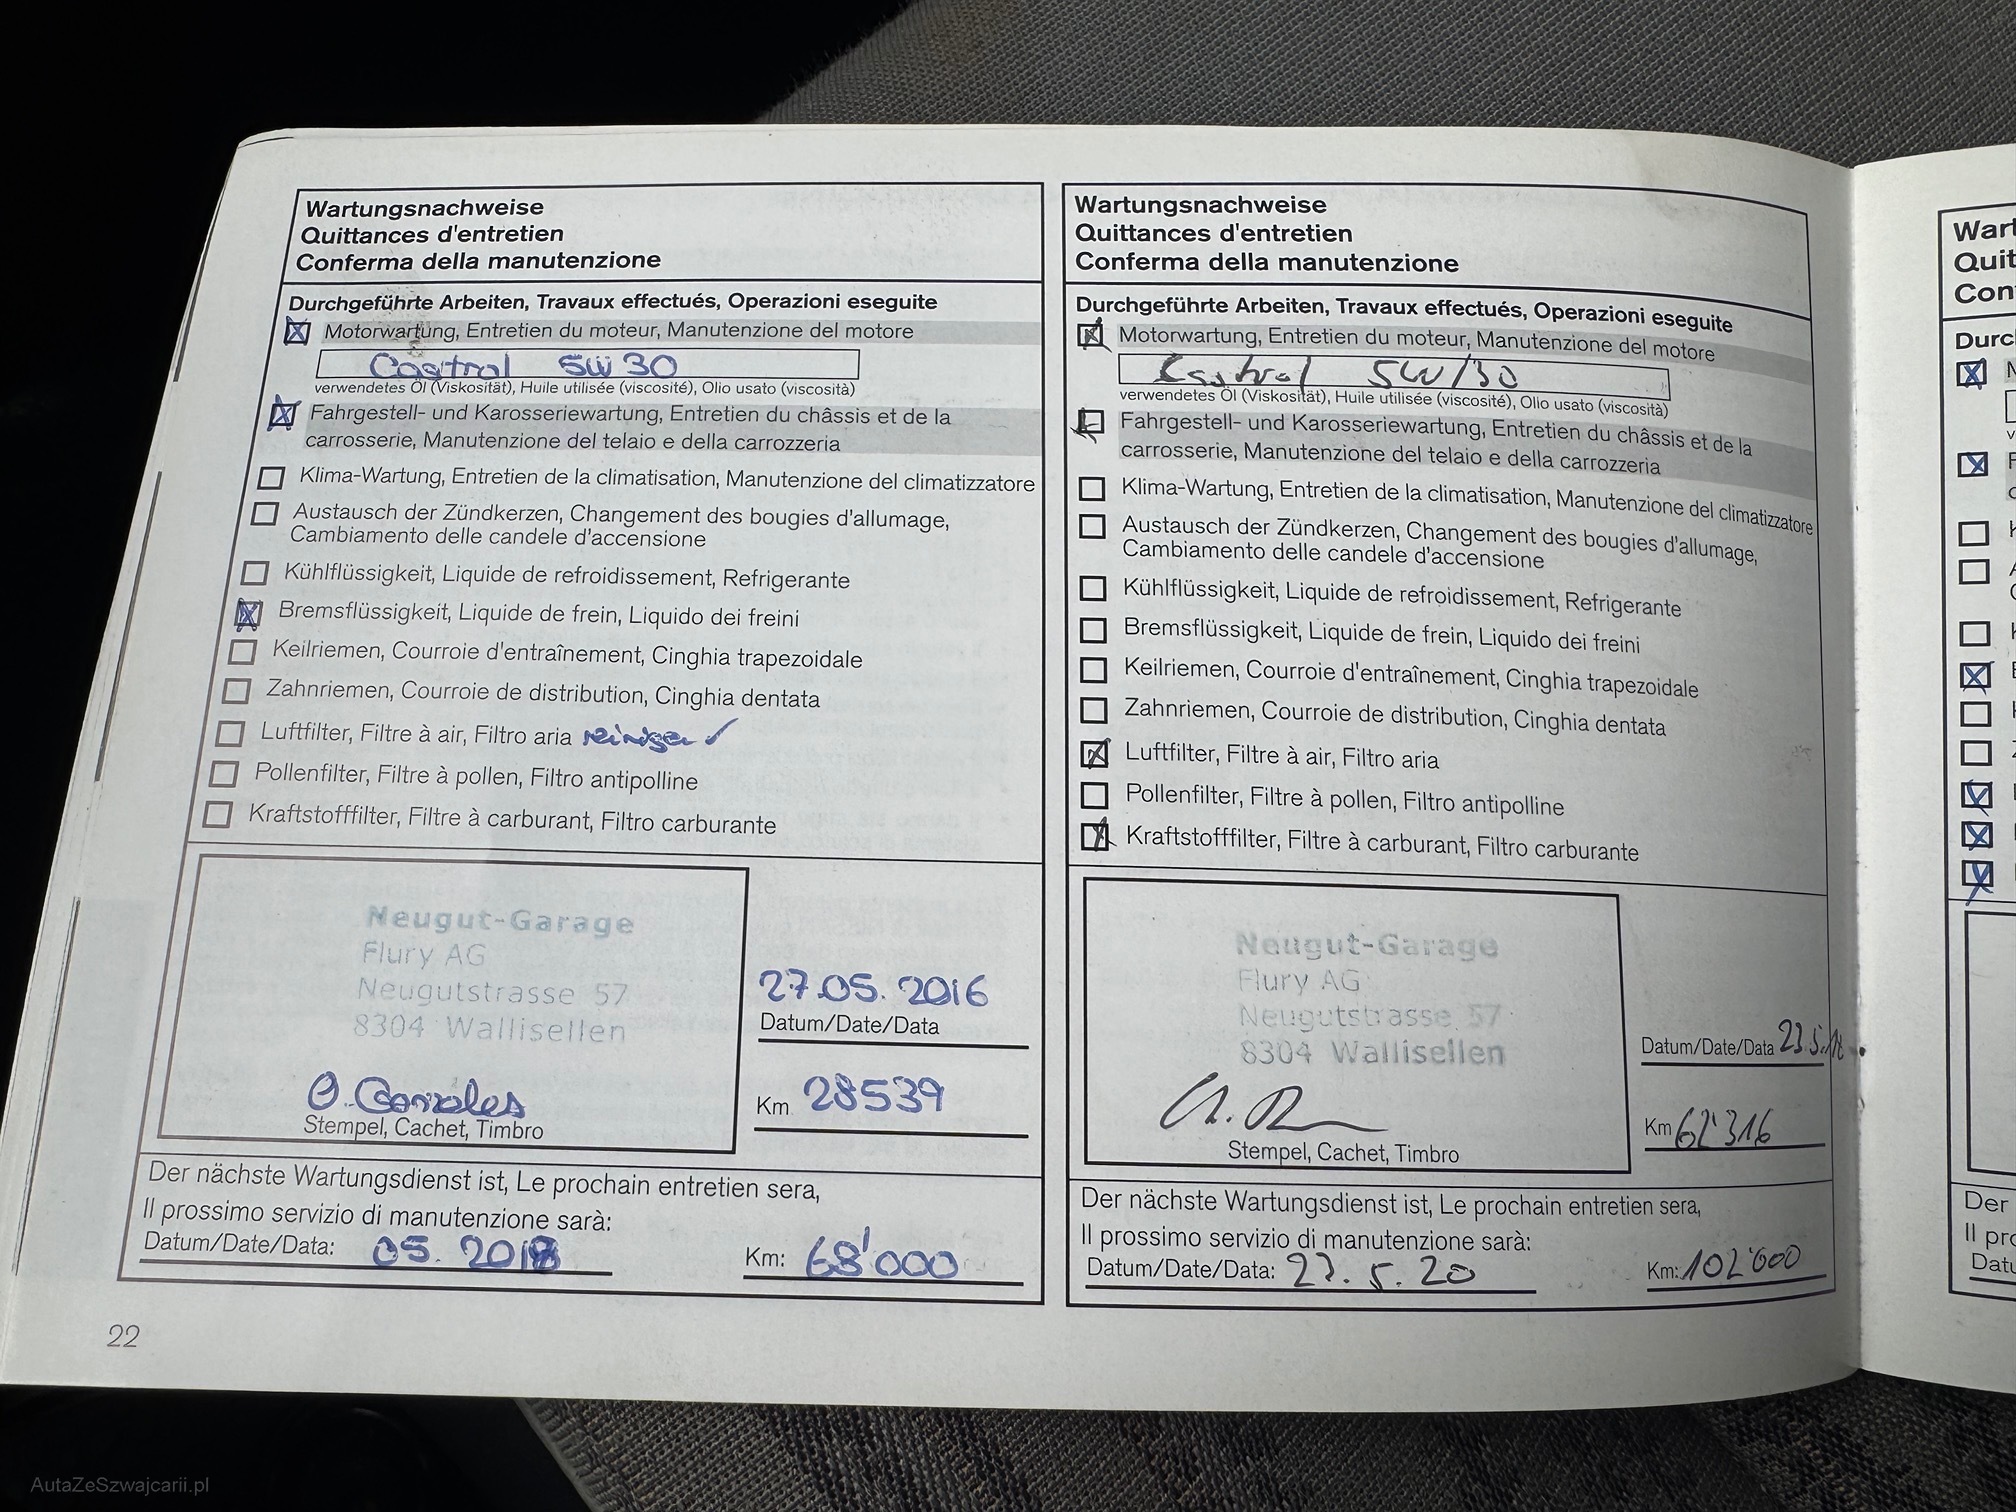 Wartungsnachweise
Quittances d'entretien
Conferma della manutenzione
Durchgeführte Arbeiten, Travaux effectués, Operazioni eseguite
Motorwartung, Entretien du moteur, Manutenzione del motore
Castrol 5W30
verwendetes Öl (Viskosität), Huile utilisée (viscosité), Olio usato (viscosità)
Fahrgestell- und Karosseriewartung, Entretien du châssis et de la
carrosserie, Manutenzione del telaio e della carrozzeria
Klima-Wartung, Entretien de la climatisation, Manutenzione del climatizzatore
Austausch der Zündkerzen, Changement des bougies d'allumage,
Cambiamento delle candele d'accensione
Kühlflüssigkeit, Liquide de refroidissement, Refrigerante
Bremsflüssigkeit, Liquide de frein, Liquido dei freini
Keilriemen, Courroie d'entraînement, Cinghia trapezoidale
Zahnriemen, Courroie de distribution, Cinghia dentata
Luftfilter, Filtre à air, Filtro aria reinigen ✓
Pollenfilter, Filtre à pollen, Filtro antipolline
Kraftstofffilter, Filtre à carburant, Filtro carburante
Neugut-Garage
Flury AG
Neugutstrasse 57
8304 Wallisellen
O. Gonzales
Stempel, Cachet, Timbro
27.05.2016
Datum/Date/Data
Km 28539
Der nächste Wartungsdienst ist, Le prochain entretien sera,
Il prossimo servizio di manutenzione sarà:
Datum/Date/Data: 05.2018 Km: 68'000
22
Wartungsnachweise
Quittances d'entretien
Conferma della manutenzione
Durchgeführte Arbeiten, Travaux effectués, Operazioni eseguite
Motorwartung, Entretien du moteur, Manutenzione del motore
Castrol 5W/30
verwendetes Öl (Viskosität), Huile utilisée (viscosité), Olio usato (viscosità)
Fahrgestell- und Karosseriewartung, Entretien du châssis et de la
carrosserie, Manutenzione del telaio e della carrozzeria
Klima-Wartung, Entretien de la climatisation, Manutenzione del climatizzatore
Austausch der Zündkerzen, Changement des bougies d'allumage,
Cambiamento delle candele d'accensione
Kühlflüssigkeit, Liquide de refroidissement, Refrigerante
Bremsflüssigkeit, Liquide de frein, Liquido dei freini
Keilriemen, Courroie d'entraînement, Cinghia trapezoidale
Zahnriemen, Courroie de distribution, Cinghia dentata
Luftfilter, Filtre à air, Filtro aria
Pollenfilter, Filtre à pollen, Filtro antipolline
Kraftstofffilter, Filtre à carburant, Filtro carburante
Neugut-Garage
Flury AG
Neugutstrasse 57
8304 Wallisellen
Stempel, Cachet, Timbro
Datum/Date/Data 23.5.18
Km 62'316
Der nächste Wartungsdienst ist, Le prochain entretien sera,
Il prossimo servizio di manutenzione sarà:
Datum/Date/Data: 23.5.20 Km: 102'000
Wart
Quit
Con
Durc
Der
Il pro
Datu
AutaZeSzwajcarii.pl